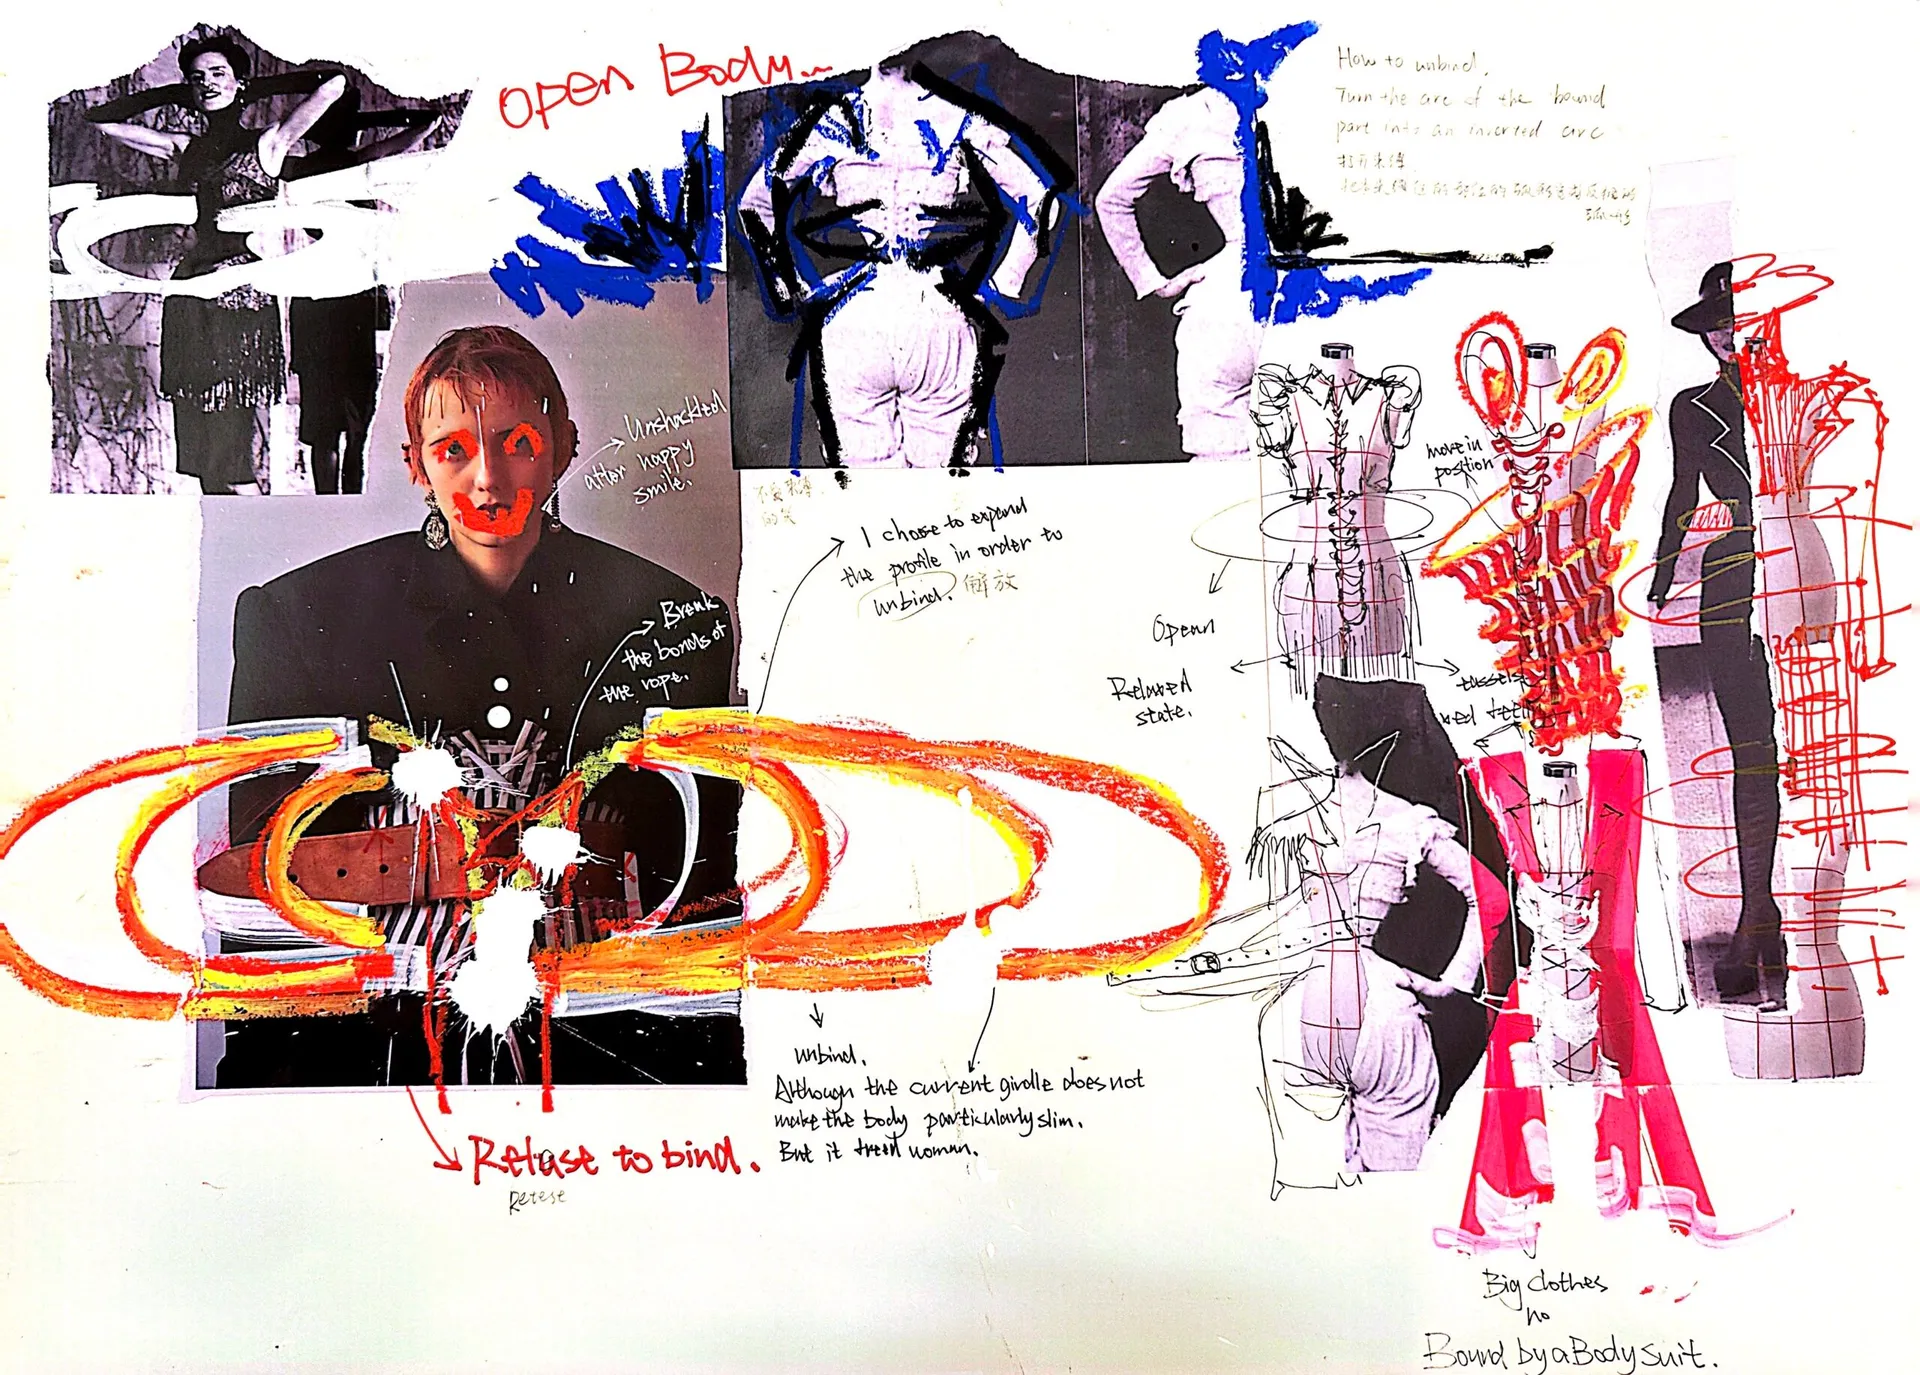 open Body...
How to unbind.
Turn the arc of the bound
part into an inverted arc
打开束缚
Unshackled
after happy
smile.
I choose to expand
the profile in order to
unbind. 解放
Break
the bonds of
the rope.
move in
position
Openn
Relaxed
state.
tassels
unbind.
Although the current girdle does not
make the body particularly slim.
But it freed woman.
Refuse to bind.
Big clothes
no
Bound by a Body suit.